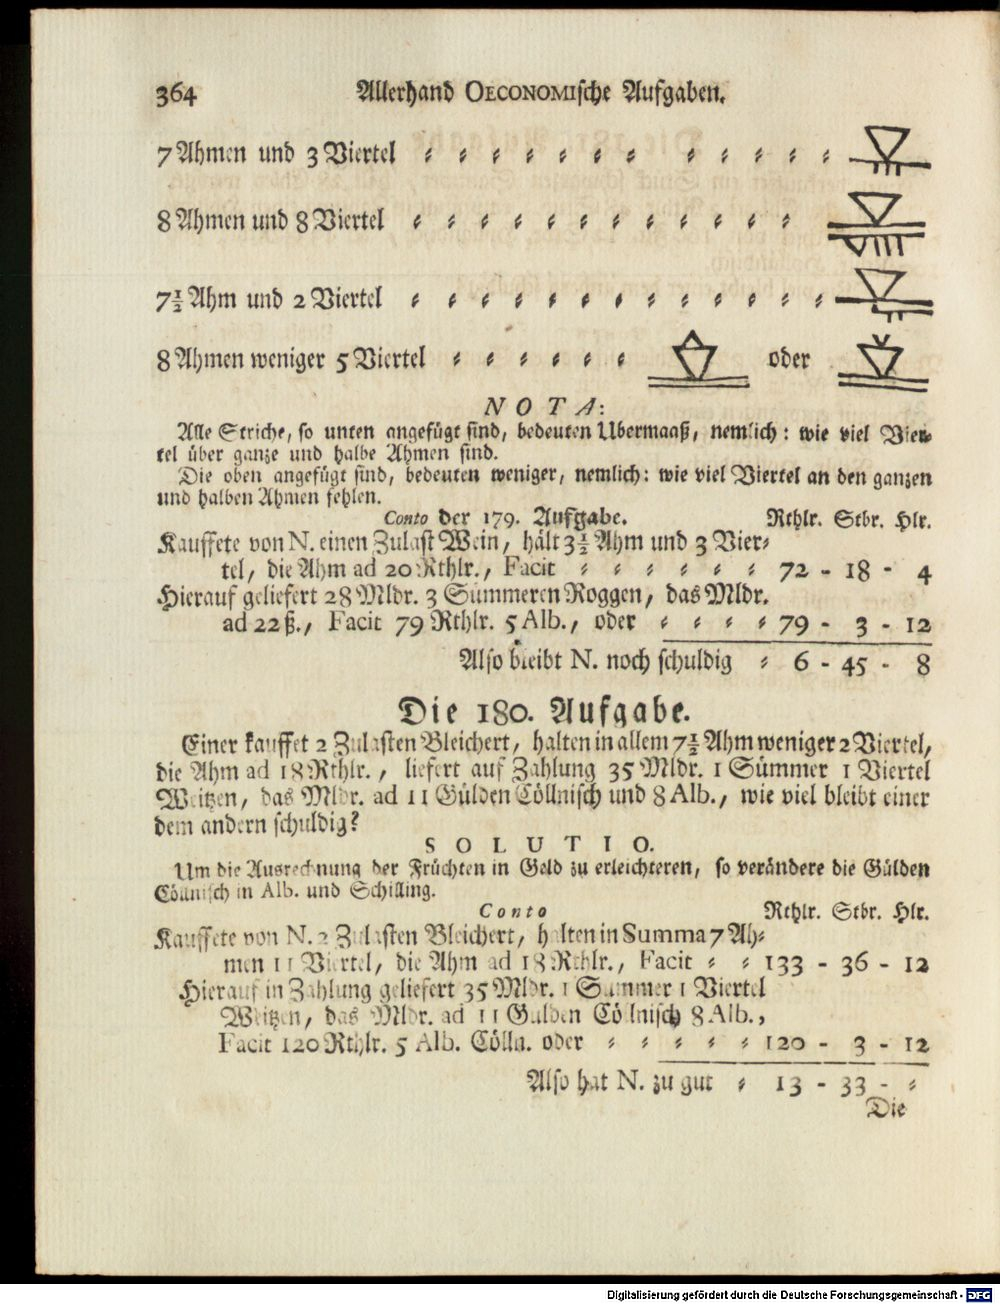 364 Allerhand OECONOMIsche Aufgaben.
7 Ahmen und 3 Viertel
8 Ahmen und 8 Viertel
7½ Ahm und 2 Viertel
8 Ahmen weniger 5 Viertel oder
NOTA:
Alle Striche, so unten angefügt sind, bedeuten Ubermaaß, nemlich: wie viel Vier-
tel über ganze und halbe Ahmen sind.
Die oben angefügt sind, bedeuten weniger, nemlich: wie viel Viertel an den ganzen
und halben Ahmen fehlen.
Conto der 179. Aufgabe. Rthlr. Stbr. Hlr.
Kauffete von N. einen Zulast Wein, hält 3½ Ahm und 3 Vier-
tel, die Ahm ad 20 Rthlr., Facit 72 - 18 - 4
Hierauf geliefert 28 Mldr. 3 Sümmeren Roggen, das Mldr.
ad 22 ß., Facit 79 Rthlr. 5 Alb., oder 79 - 3 - 12
Also bleibt N. noch schuldig 6 - 45 - 8
Die 180. Aufgabe.
Einer kauffet 2 Zulasten Bleichert, halten in allem 7½ Ahm weniger 2 Viertel,
die Ahm ad 18 Rthlr., liefert auf Zahlung 35 Mldr. 1 Sümmer 1 Viertel
Weitzen, das Mldr. ad 11 Gülden Cöllnisch und 8 Alb., wie viel bleibt einer
dem andern schuldig?
SOLUTIO.
Um die Ausrechnung der Früchten in Geld zu erleichteren, so verändere die Gülden
Cöllnisch in Alb. und Schilling.
Conto Rthlr. Stbr. Hlr.
Kauffete von N. 2 Zulasten Bleichert, halten in Summa 7 Ah-
men 11 Viertel, die Ahm ad 18 Rthlr., Facit 133 - 36 - 12
Hierauf in Zahlung geliefert 35 Mldr. 1 Summer 1 Viertel
Weitzen, das Mldr. ad 11 Gulden Cöllnisch 8 Alb.,
Facit 120 Rthlr. 5 Alb. Cölln. oder 120 - 3 - 12
Also hat N. zu gut 13 - 33 -
Die
Digitalisierung gefördert durch die Deutsche Forschungsgemeinschaft - DFG